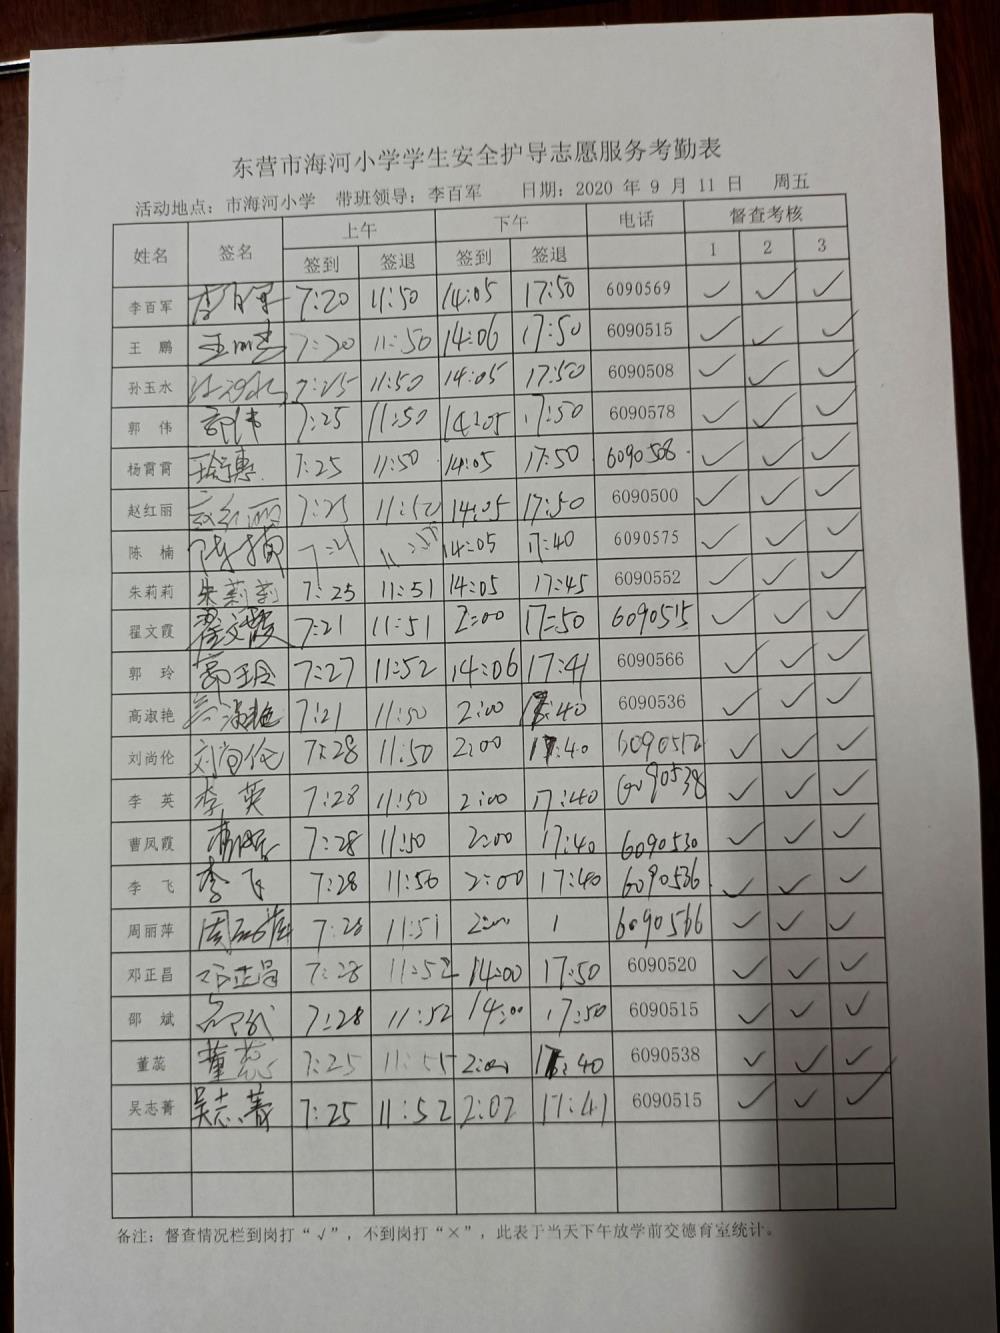 东营市海河小学学生安全护导志愿服务考勤表
活动地点：市海河小学 带班领导：李百军 日期：2020 年 9 月 11 日 周五
姓名 签名 上午 下午 电话 督查考核
签到 签退 签到 签退 1 2 3
李百军 李百军 7:20 11:50 14:05 17:50 6090569 ✓ ✓ ✓
王 鹏 7:20 11:50 14:06 17:50 6090515 ✓ ✓ ✓
孙玉水 7:25 11:50 14:05 17:50 6090508 ✓ ✓ ✓
郭 伟 郭伟 7:25 11:50 14:05 17:50 6090578 ✓ ✓ ✓
杨霄霄 7:25 11:50 14:05 17:50 6090508 ✓ ✓ ✓
赵红丽 赵红丽 7:25 11:52 14:05 17:50 6090500 ✓ ✓ ✓
陈 楠 陈楠 7:21 14:05 17:40 6090575 ✓ ✓ ✓
朱莉莉 朱莉莉 7:25 11:51 14:05 17:45 6090552 ✓ ✓ ✓
翟文霞 翟文霞 7:21 11:51 2:00 17:50 6090515 ✓ ✓ ✓
郭 玲 郭玲 7:27 11:52 14:06 17:41 6090566 ✓ ✓ ✓
高淑艳 高淑艳 7:21 11:50 2:00 17:40 6090536 ✓ ✓ ✓
刘尚伦 刘尚伦 7:28 11:50 2:00 17:40 6090512 ✓ ✓ ✓
李 英 李英 7:28 11:50 2:00 17:40 6090538 ✓ ✓ ✓
曹凤霞 7:28 11:50 2:00 17:40 6090530 ✓ ✓ ✓
李 飞 李飞 7:28 11:50 2:00 17:40 6090536 ✓ ✓ ✓
周丽萍 周丽萍 7:28 11:51 2:00 1 6090566 ✓ ✓ ✓
邓正昌 邓正昌 7:28 11:52 14:00 17:50 6090520 ✓ ✓ ✓
邵 斌 邵斌 7:28 11:52 14:00 17:50 6090515 ✓ ✓ ✓
董蕊 董蕊 7:25 11:55 2:00 17:40 6090538 ✓ ✓ ✓
吴志菁 吴志菁 7:25 11:52 2:02 17:41 6090515 ✓ ✓ ✓
备注：督查情况栏到岗打“√”，不到岗打“×”，此表于当天下午放学前交德育室统计。